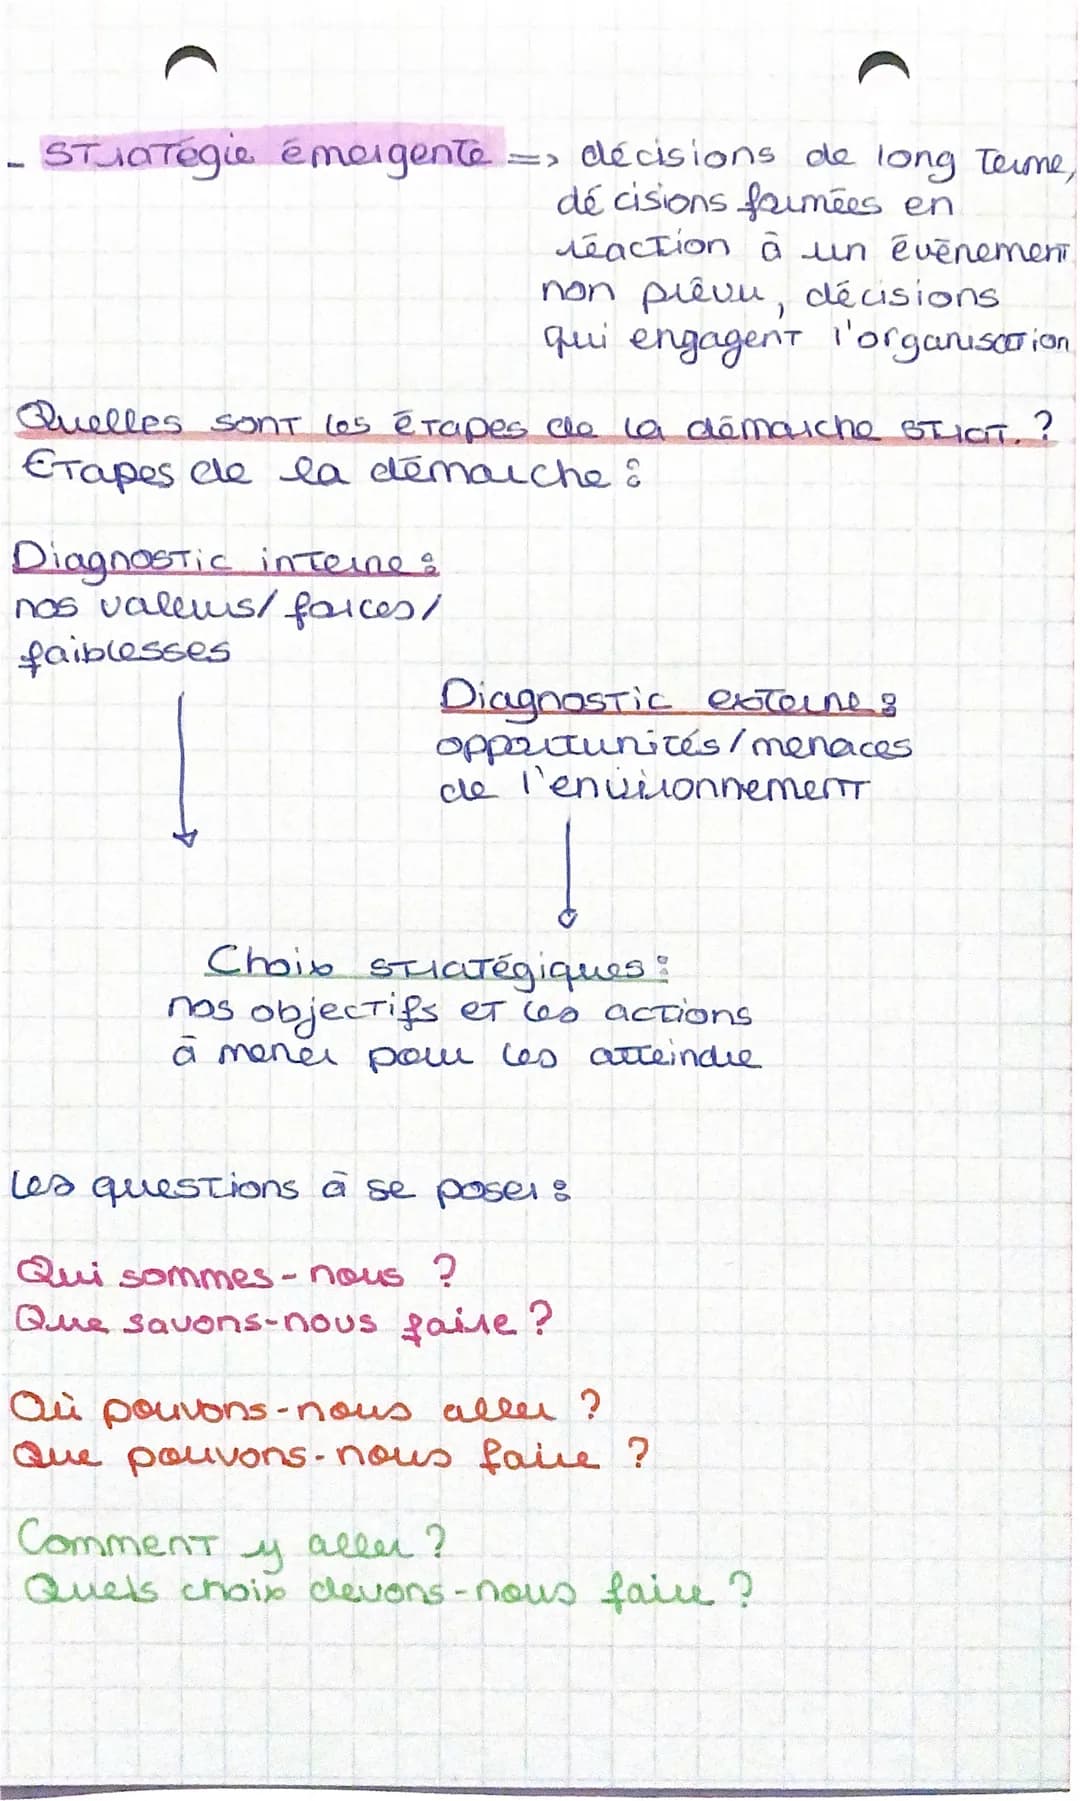 - Stratégie émergente => décisions de long terme,
décisions formées en
réaction à un évènement
non prévu, décisions
qui engagent l'organisation
Quelles sont les étapes de la démarche strat. ?
Etapes de la démarche :
Diagnostic interne :
nos valeurs/ forces/
faiblesses
Diagnostic externe :
opportunités/menaces
de l'environnement
Choix stratégiques :
nos objectifs et les actions
à mener pour les atteindre
Les questions à se poser :
Qui sommes-nous ?
Que savons-nous faire ?
Où pouvons-nous aller ?
Que pouvons-nous faire ?
Comment y aller ?
Quels choix devons-nous faire ?